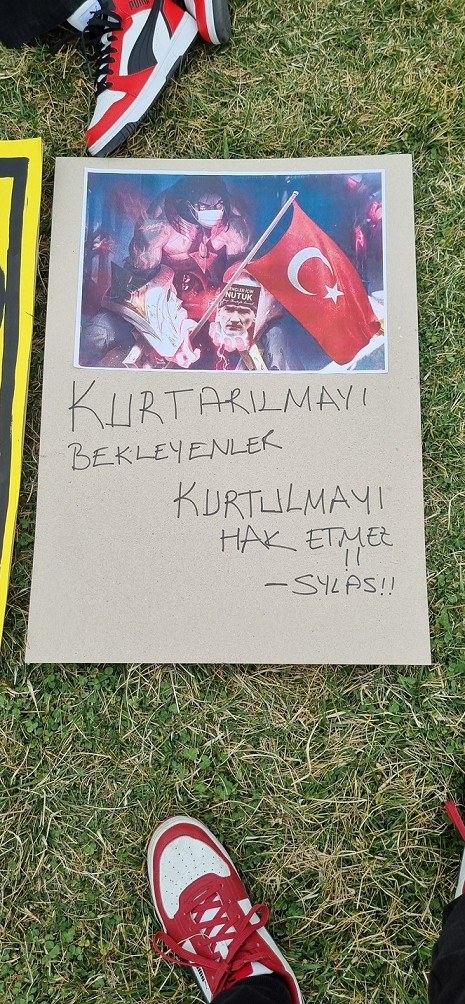 GENÇLER İÇİN
NUTUK
KURTARILMAYI
BEKLEYENLER
KURTULMAYI
HAK ETMEZ
!!
-SYLAS!!